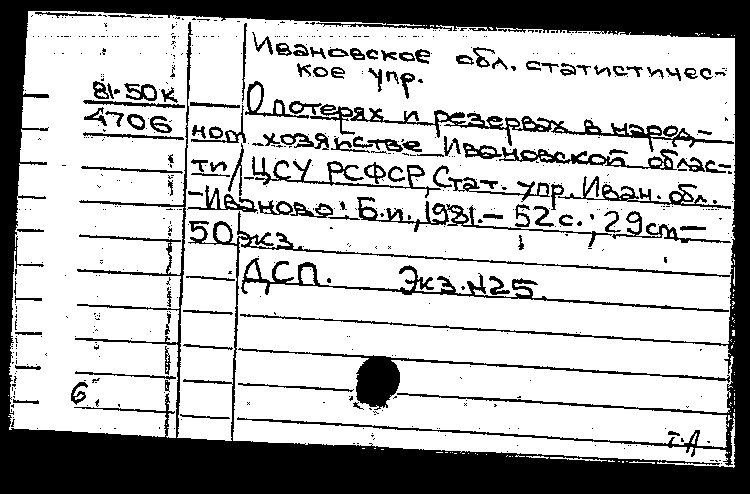 Ивановское обл. статистичес-
кое упр.
81-50к
4706
О потерях и резервах в народ-
ном хозяйстве Ивановской облас-
ти / ЦСУ РСФСР, Стат. упр. Иван. обл.
-Иваново: Б.и., 1981.- 52 с.; 29 см.-
50 экз.
ДСП. Экз. N25.
6.
Т.А